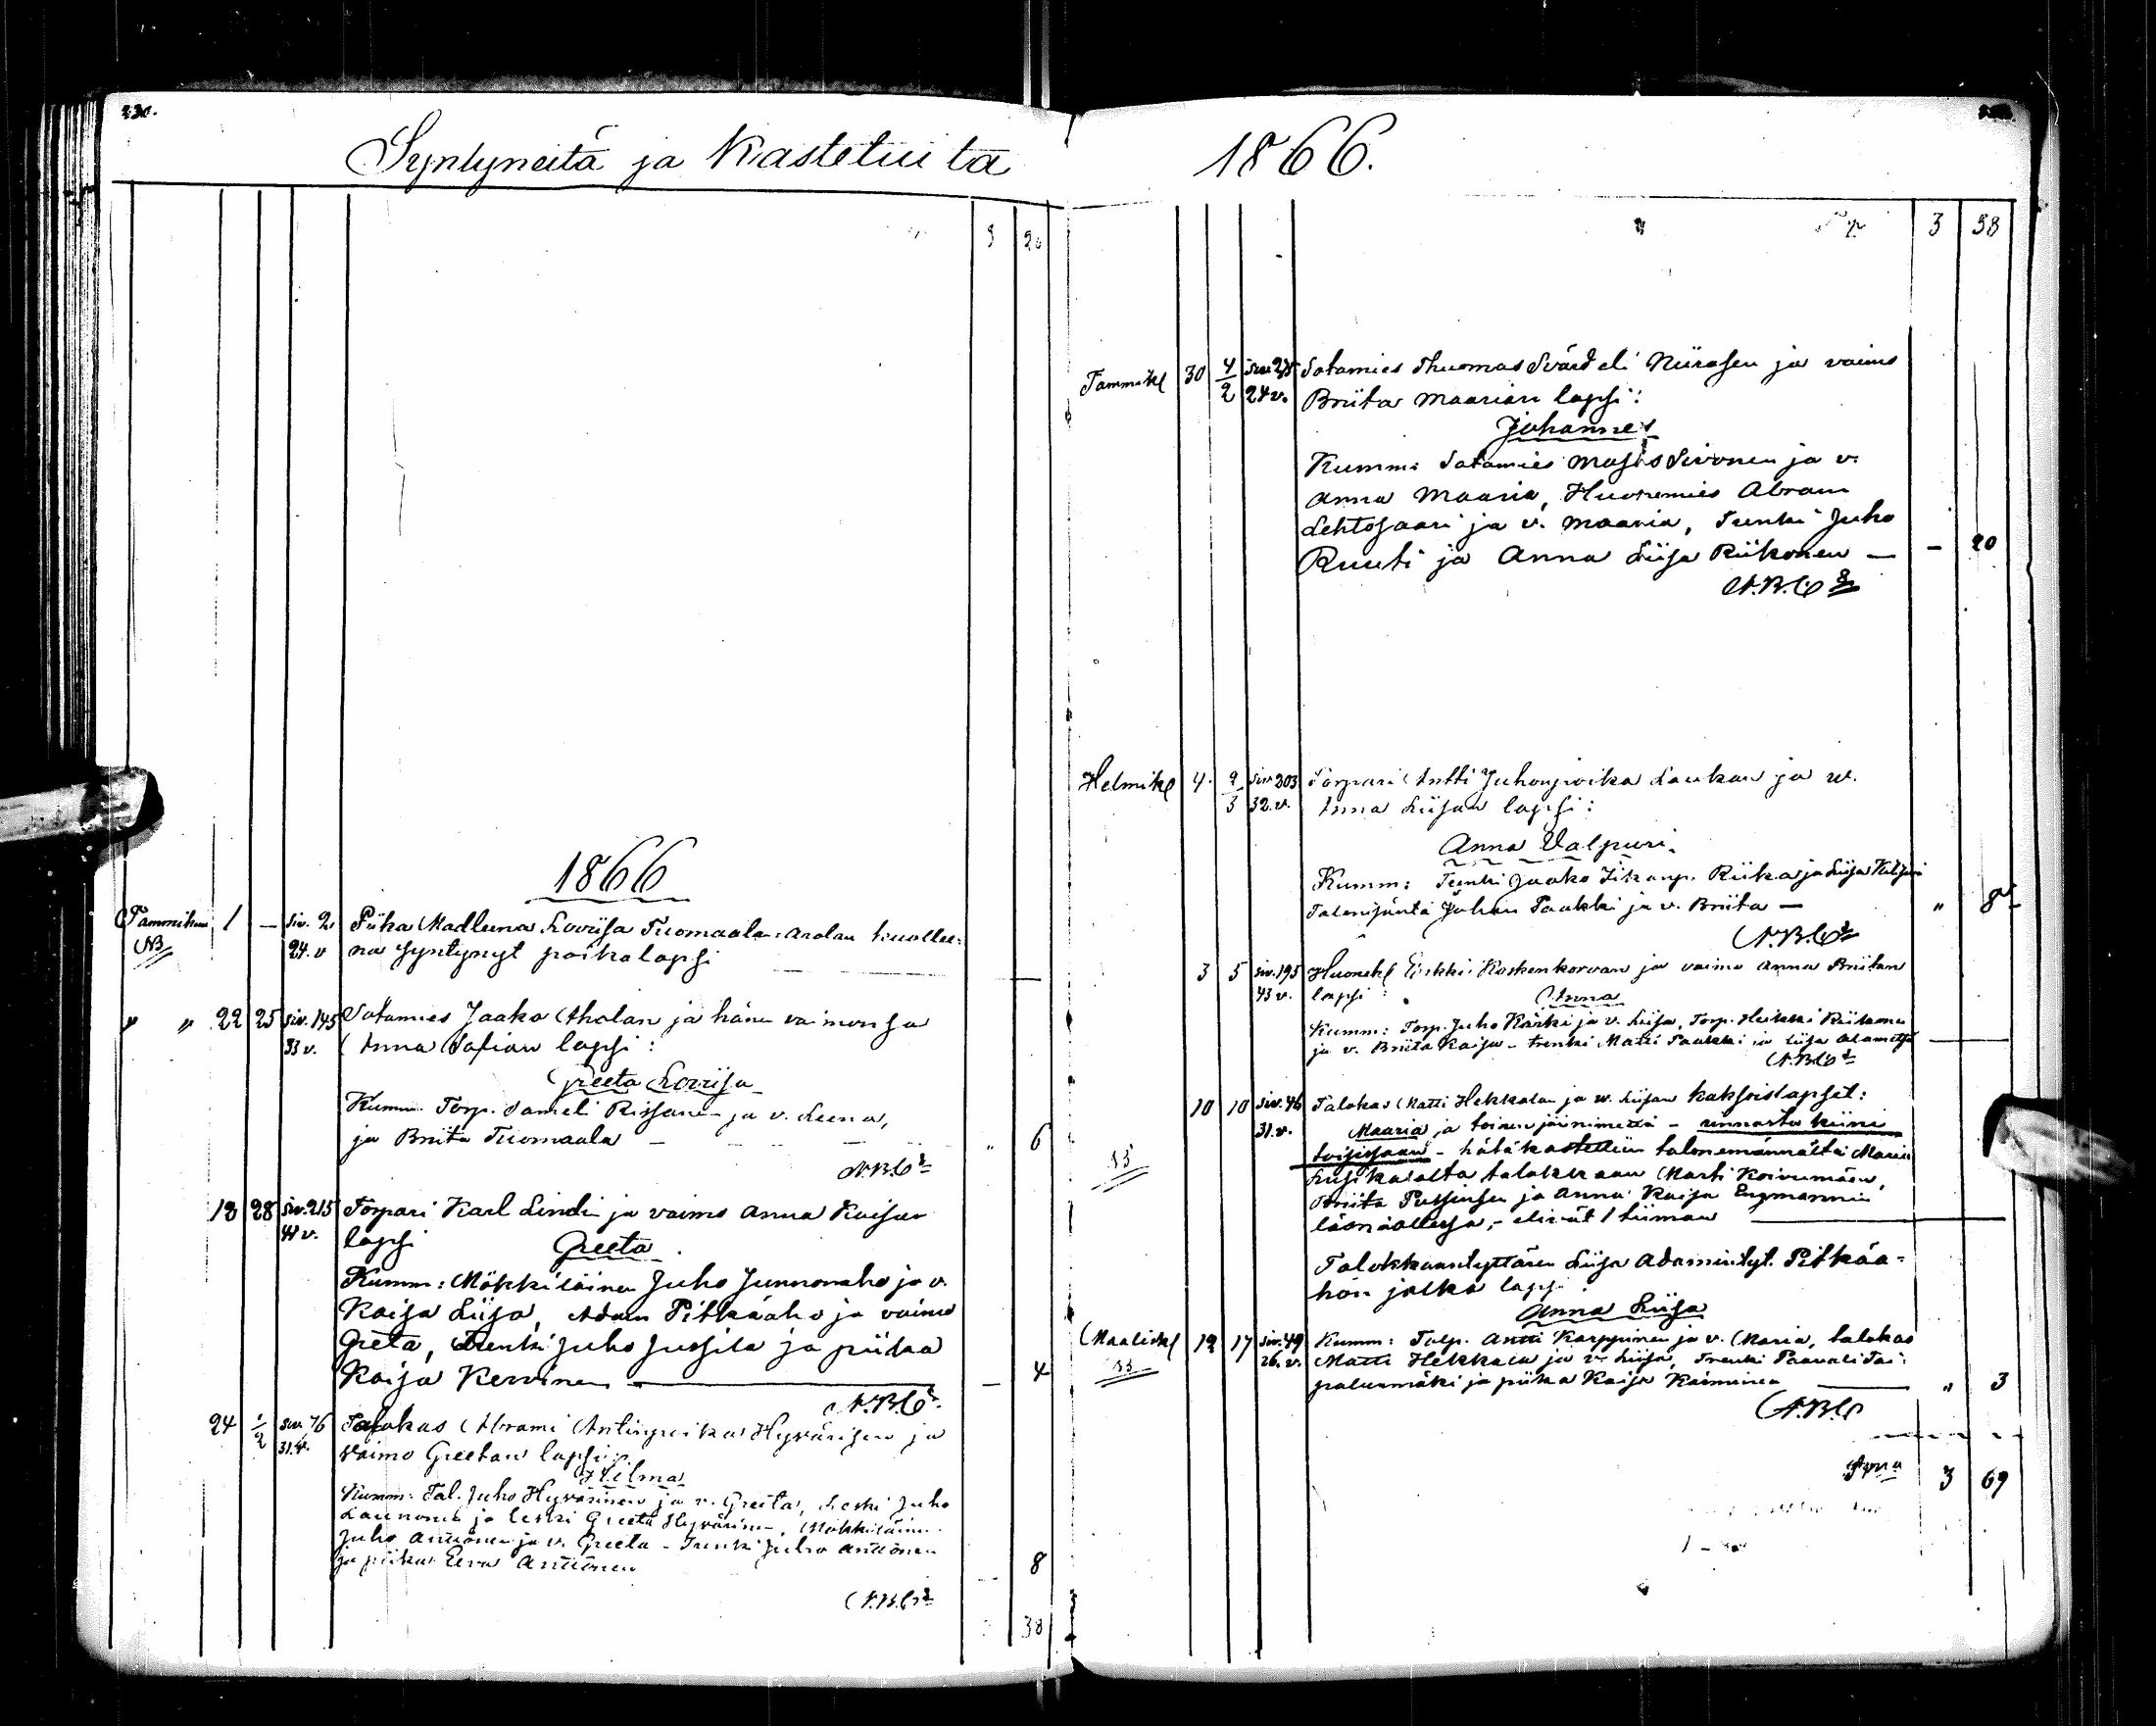 Syntyneitä ja Kastetuita
3 20
1866
Tammikuu 1 — Siv. 2
NB 24. v
Piika Madleena Loviisa Tuomaala-Aralan kuollee-
na syntynyt poikalapsi
" " 22 25 Siv. 145
33 v.
Sotamies Jaako Ahalan ja hänen vaimonsa
Anna Sofian lapsi:
Greeta Loviisa
Kumm. Torp. Sameli Rissanen ja v. Leena,
ja Briita Tuomaala — " 6
N.B.C
18 28 Siv. 215
41 v.
Torpari Karl Lindin ja vaimo Anna Kaisan
lapsi Greeta
Kumm: Mökkiläinen Juho Junnonaho ja v.
Kaisa Liisa, Adam Pitkäaho ja vaimo
Greta, Trenki Juho Jussila ja piika
Kaisa Kervinen — 4
N.B.C
24 1/2 Siv. 76
31. v.
Talokas Abrami Antinpoika Hyvärisen ja
vaimo Greetan lapsi:
Hilma
Kumm: Tal. Juho Hyvärinen ja v. Greeta, Leski Juho
Launonen ja leski Greeta Hyvärinen, Mökkiläinen
Juho Anttonen ja v. Greeta - Trenki Juho Anttonen
ja piika Eeva Anttonen 8
N.B.C
38
1866.
3 38
Tammik 30 4/2 Siv 275
24 v.
Sotamies Thuomas Svärd eli Niirasen ja vaimo
Briita Maarian lapsi:
Johannes
Kumm: Sotamies Sivonen ja v.
Anna Maaria, Huonemies Abram
Lehtosaari ja v. Maaria, Trenki Juho
Ruuti ja Anna Liisa Riikonen — — 20
N.B.C
Helmik 4. 2/3 Siv 203
32. v.
Torpari Antti Juhonpoika Laukan ja w.
Anna Liisan lapsi:
Anna Valpuri.
Kumm: Trenki Jaako Riika ja Liisa
Talonisäntä Johan Paakki ja v. Briita — " 8
N.B.C
3 5 Siv. 195
43 v.
Huonek Erkki Koskenkorvan ja vaimo Anna Briitan
lapsi: Anna
Kumm: Torp. Juho Kärki ja v. Liisa, Torp. Heikki Riikonen
ja v. Briita Kaisa - trenki Matti Paakki ja Liisa Alametsä
N.B.C
10 10 Siv. 46
31. v.
Talokas Matti Hekkalan ja w. Liisan kaksoislapset:
Maaria ja toinen jäi nimettä - rinnasta kiini
NB toisissaan - hätäkastettiin talonemännältä Maria
talokkaan Matti Koivumäen,
Briita Pussinen ja Anna Kaisa Engmannin
läsnäollessa, - elivät 1 tiiman
Talokkaantyttären Liisa Adamintyt. Pitkäa-
hon jalka lapsi
Anna Liisa
Maalisk 12 17 Siv. 49
NB 26. v.
Kumm: Talp. Antti Karppinen ja v. Maria, talokas
Matti Hekkala ja v. Liisa, Trenki Paavali Tai-
palusmäki ja piika Kaisa Kaiminen — " 3
N.B.C
3 69